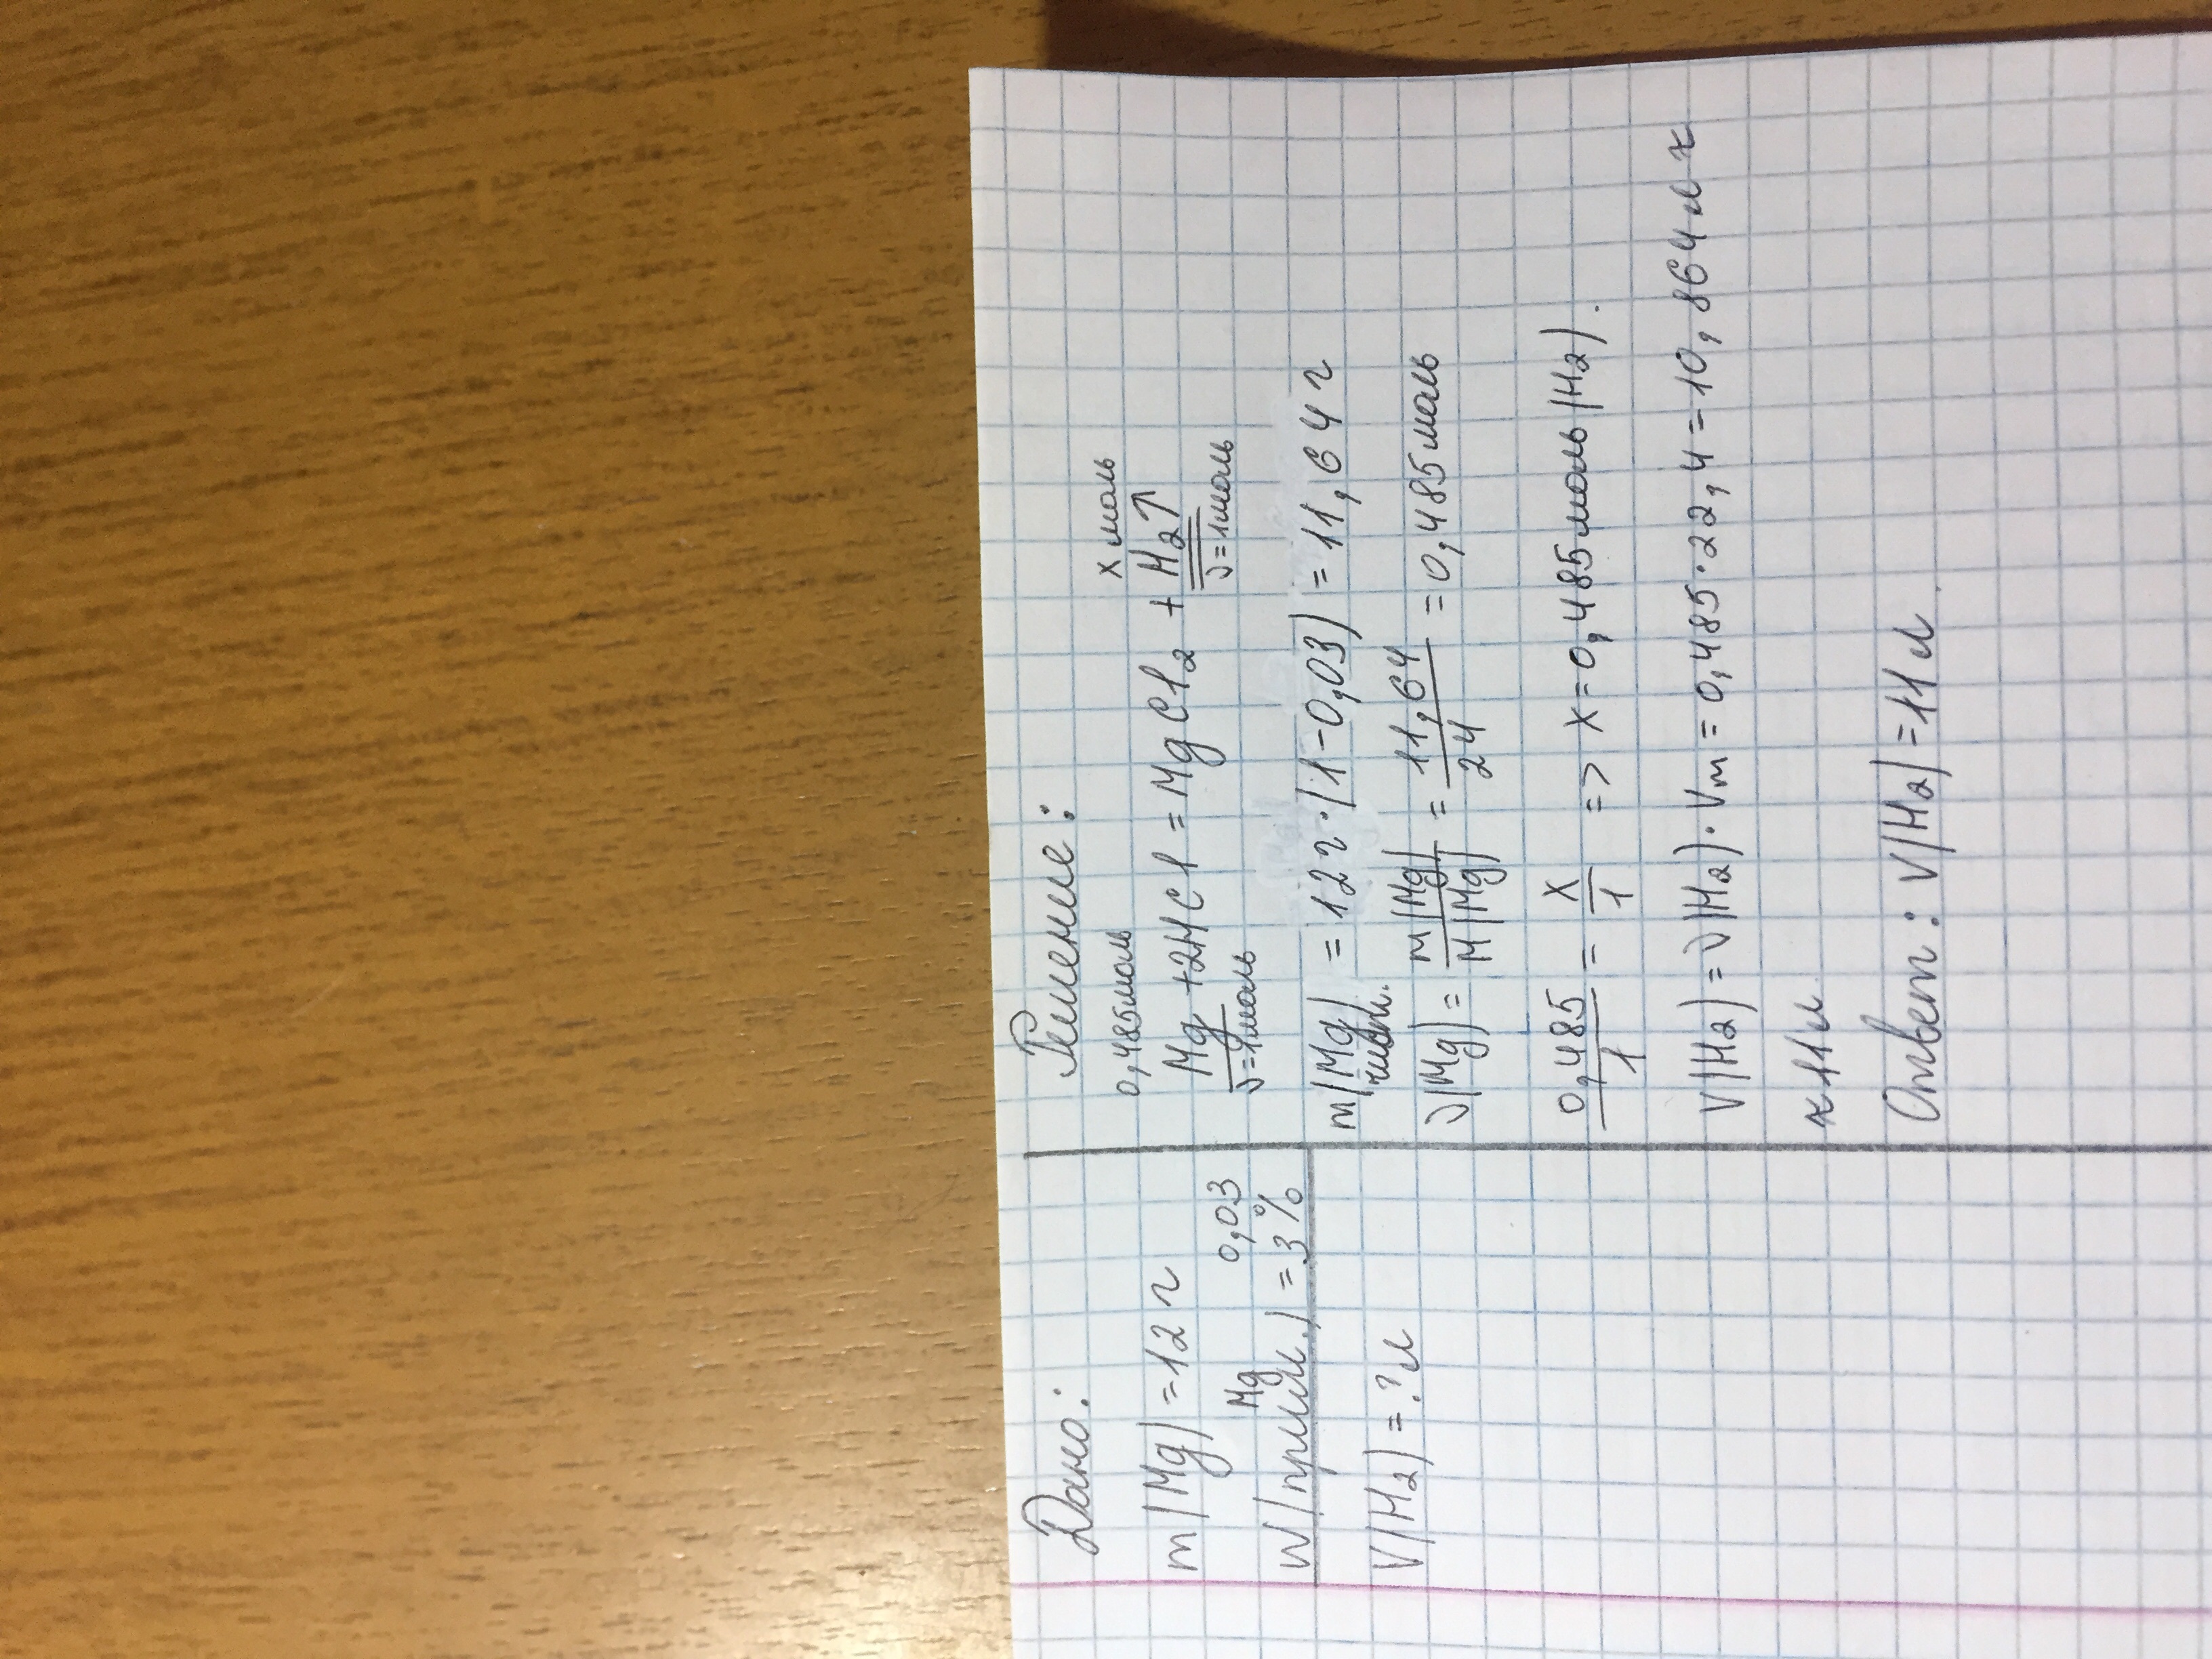 Дано:
m(Mg) = 12 г
Mg 0,03
W(прим.) = 3%
V(H2) = ? л
Решение:
0,485моль x моль
Mg + 2HCl = MgCl2 + H2↑
ν=1моль ν=1моль
m(Mg) = 12 г · (1-0,03) = 11,64 г
чист.
ν(Mg) = m(Mg)/M(Mg) = 11,64/24 = 0,485моль
0,485/1 = x/1 => x = 0,485моль(H2).
V(H2) = ν(H2) · Vm = 0,485 · 22,4 = 10,864 л ≈
≈ 11 л
Ответ: V(H2) = 11 л.